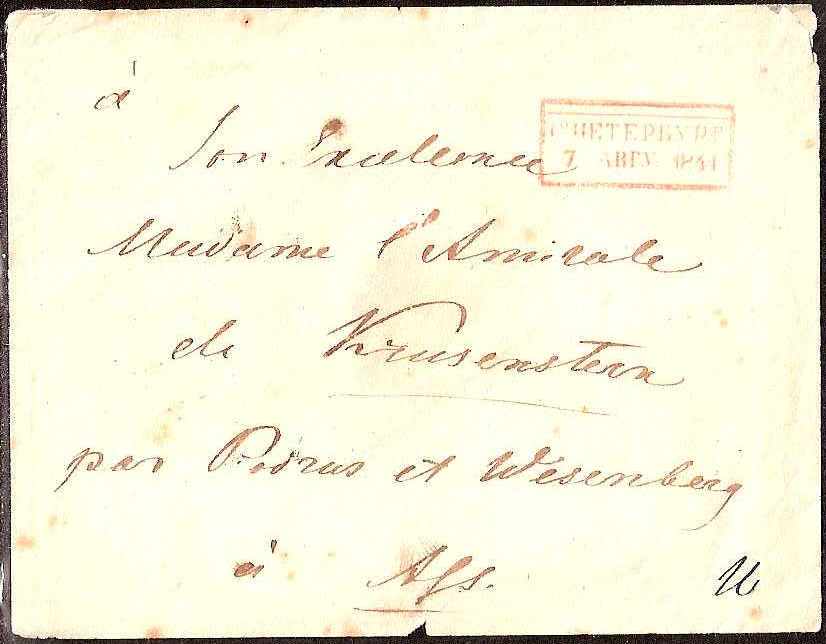 à
Son Excelence
Madame l'Amirale
de Krusenstern
par Podrus et Wesenberg
à Ass.
С.ПЕТЕРБУРГ
7 1844